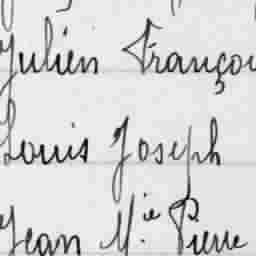 Julien Françoi
Louis Joseph
Jean M.ie Pierre